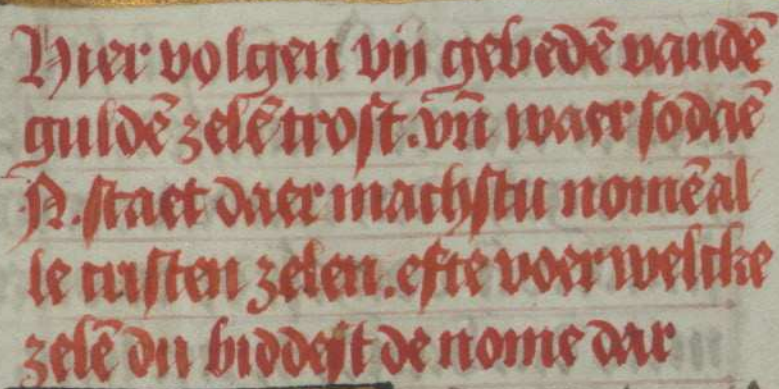 Hier volgen vij gebedē vandē
guldē zelē trost. vn̄ waer so daē
.N. staet daer machstu nomē al
le cristen zelen. efte voer welcke
zelē du biddest de nome dar